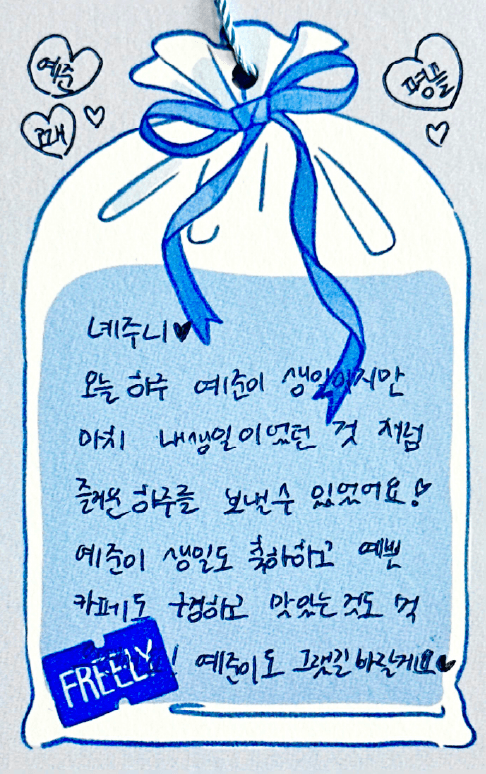 예준
고래
평생
네주니♥
오늘 하루 예준이 생일이지만
마치 내생일이었던 것 처럼
즐거운 하루를 보낼수 있었어요!♡
예준이 생일도 축하하고 예쁜
카페도 구경하고 맛있는것도 먹
! 예준이도 그랬길바랄게요♥
FREELY